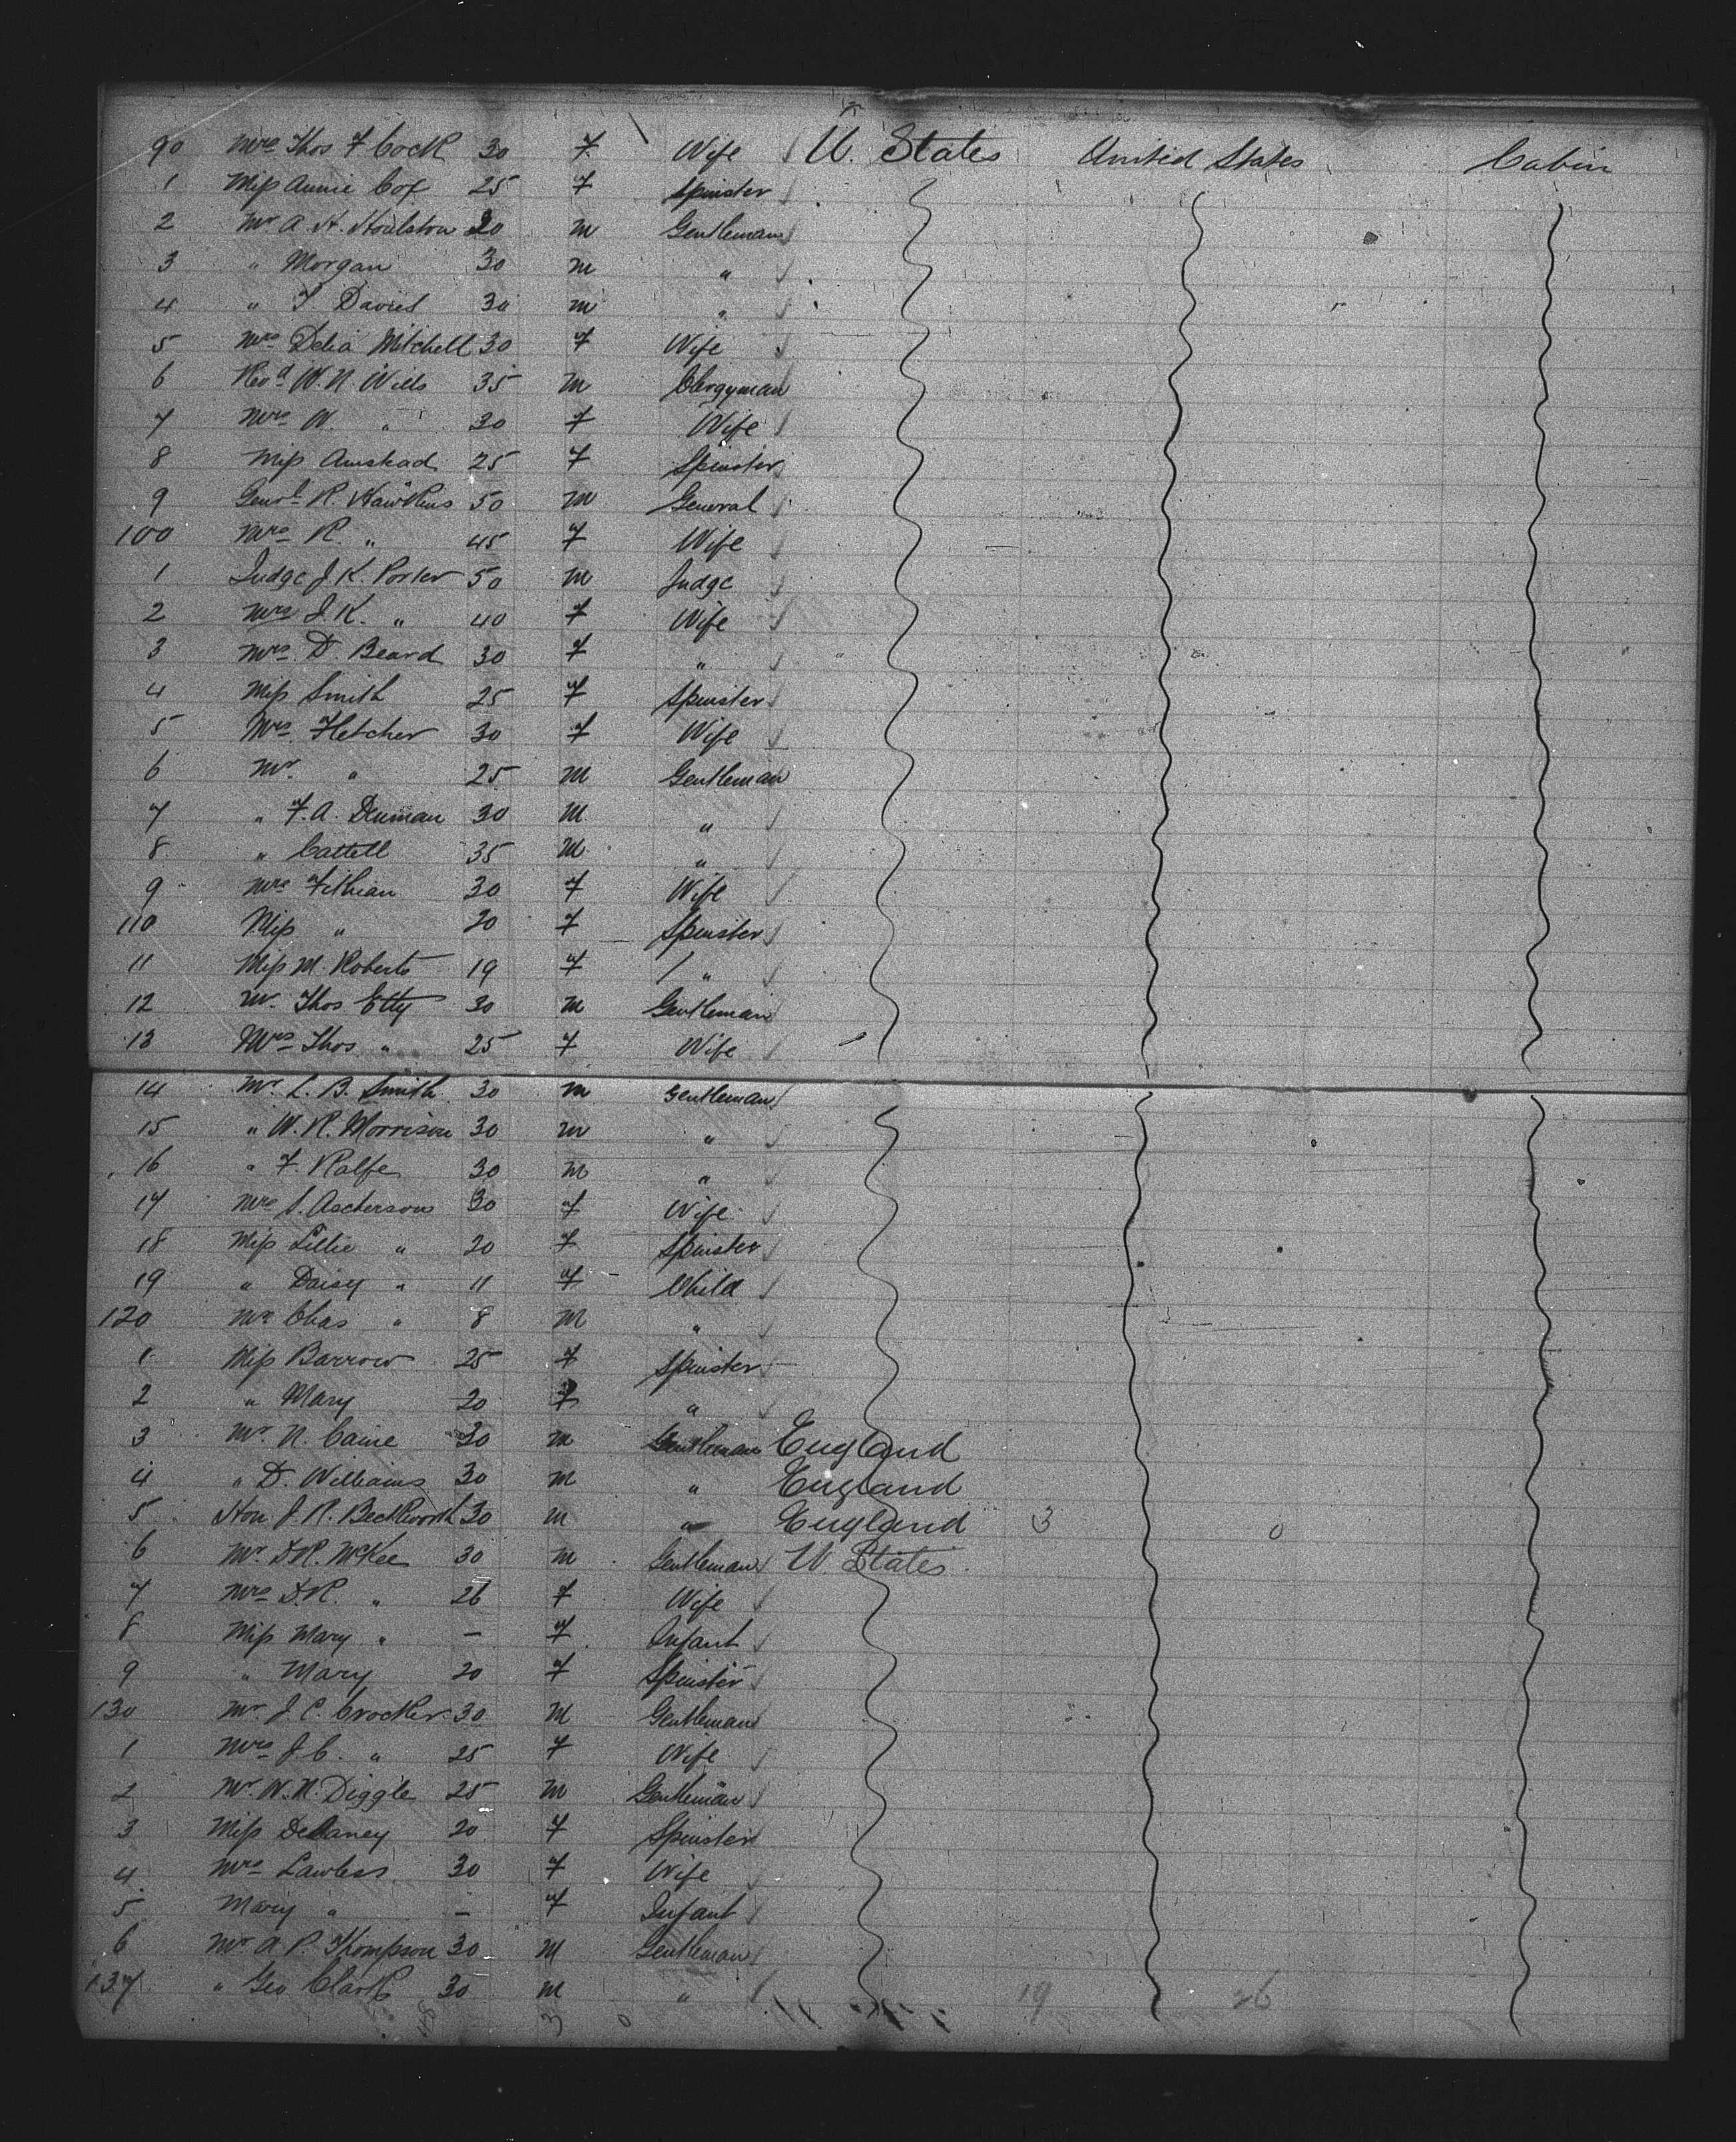 90 Mrs Thos F Cock 30 F Wife U. States United States Cabin
1 Miss Annie Cox 25 F Spinster
2 Mr A. H. Houlston 20 M Gentleman
3 " Morgan 30 M "
4 " T. Davies 30 M "
5 Mrs Delia Mitchell 30 F Wife
6 Revd W. N. Wills 35 M Clergyman
7 Mrs W. " 30 F Wife
8 Miss 25 F Spinster
9 Genl R. Hawkins 50 M General
100 Mrs R. " 45 F Wife
1 Judge J. K. Porter 50 M Judge
2 Mrs J. K. " 40 F Wife
3 Mrs D. Beard 30 F "
4 Miss Smith 25 F Spinster
5 Mrs Fletcher 30 F Wife
6 Mr. " 25 M Gentleman
7 " F. A. Denman 30 M "
8 " Cattell 35 M "
9 Mrs Fithian 30 F Wife
110 Miss " 20 F Spinster
11 Miss M. Roberts 19 F "
12 Mr. Thos Etty 30 M Gentleman
13 Mrs Thos " 25 F Wife
14 Mr. L. B. Smith 30 M Gentleman
15 " W. R. Morrison 30 M "
16 " F. Ralfe 30 M "
17 Mrs S. Ascherson 30 F Wife
18 Miss Lillie " 20 F Spinster
19 " Daisy " 11 F Child
120 Mr Chas " 8 M "
1 Miss Barrow 25 F Spinster
2 " Mary 20 F "
3 Mr. N. Caine 30 M Gentleman England
4 " D. Williams 30 M " England
5 Hon J. R. Beckworth 30 M " England 3 0
6 Mr. D. R. McKee 30 M Gentleman U. States
7 Mrs D. R. " 26 F Wife
8 Miss Mary " – F Infant
9 " Mary 20 F Spinster
130 Mr. J. C. Crocker 30 M Gentleman
1 Mrs J. C. " 25 F Wife
2 Mr. W. N. Diggle 25 M Gentleman
3 Miss Delaney 20 F Spinster
4 Mrs Lawless 30 F Wife
5 Mary " – F Infant
6 Mr A. P. Thompson 30 M Gentleman
137 " Geo Clark 30 M " 19 26